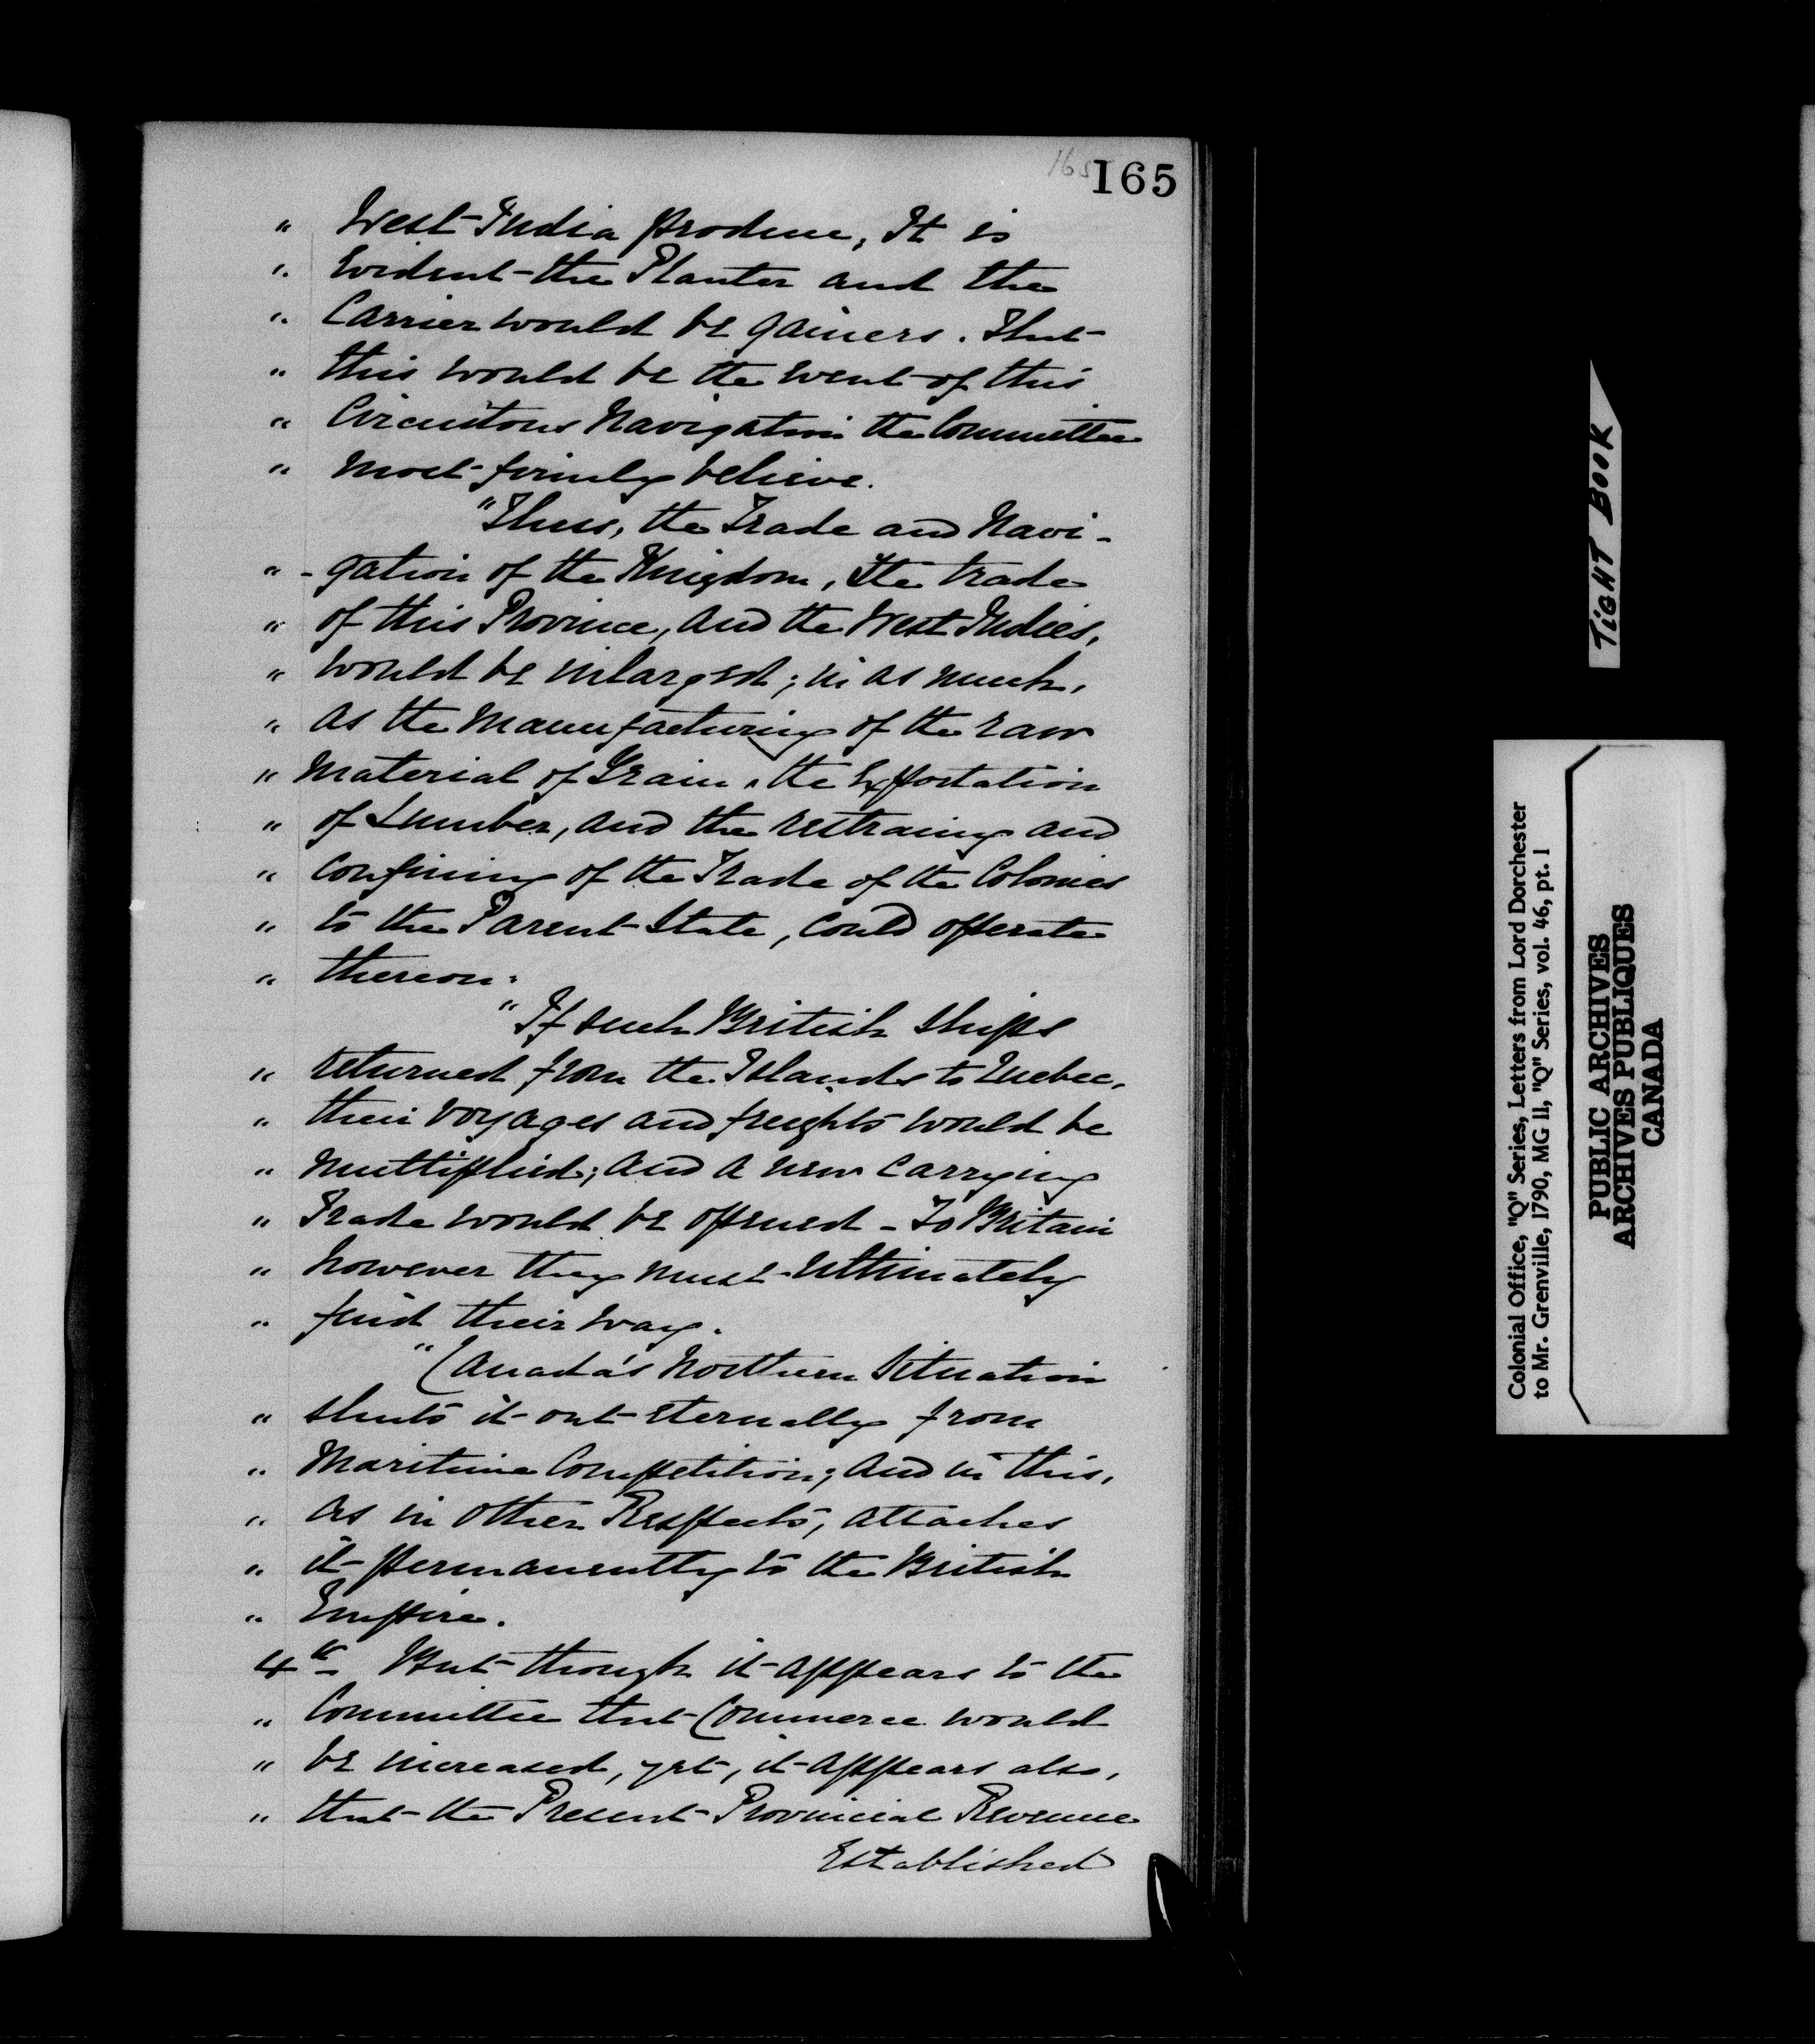 165
165
" West India produce, It is
" Evident the Planter and the
" Carrier would be gainers. That
" this would be the event of this
" Circuitous Navigation the Committee
" most firmly believe.
"Thus, the Trade and Navi-
" -gation of the Kingdom, the trade
" of this Province, and the West Indies,
" would be inlarged; in as much,
" as the manufacturing of the raw
" material of Grain, the Exportation
" of Lumber, and the restraining and
" confining of the Trade of the Colonies
" to the Parent State, could operate
" thereon.
"If such British Ships
" returned from the Islands to Quebec,
" their voyages and freights would be
" multiplied; and a new carrying
" Trade would be opened - To Britain
" however they must ultimately
" find their way.
"Canada's Northern Situation
" shuts it out eternally from
" Maritime Competition; and in this,
" as in other Respects, attaches
" it permanently to the British
" Empire.
4th But though it appears to the
" Committee that Commerce would
" be increased, yet, it appears also,
" that the Present Provincial Revenue
Established
TIGHT BOOK
Colonial Office, "Q" Series, Letters from Lord Dorchester
to Mr. Grenville, 1790, MG 11, "Q" Series, vol. 46, pt. 1
PUBLIC ARCHIVES
ARCHIVES PUBLIQUES
CANADA